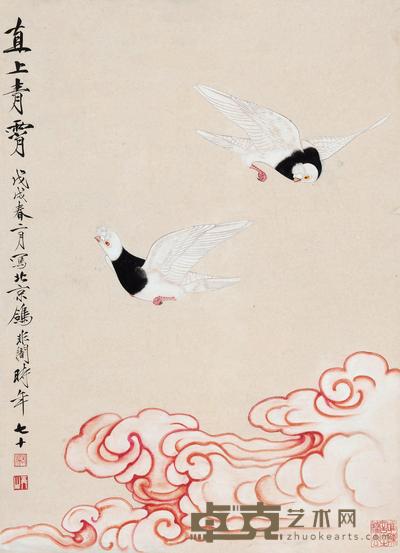 直上青霄
戊戌春二月写北京鸽非闇时年七十
卓克艺术网
zhuokearts.com